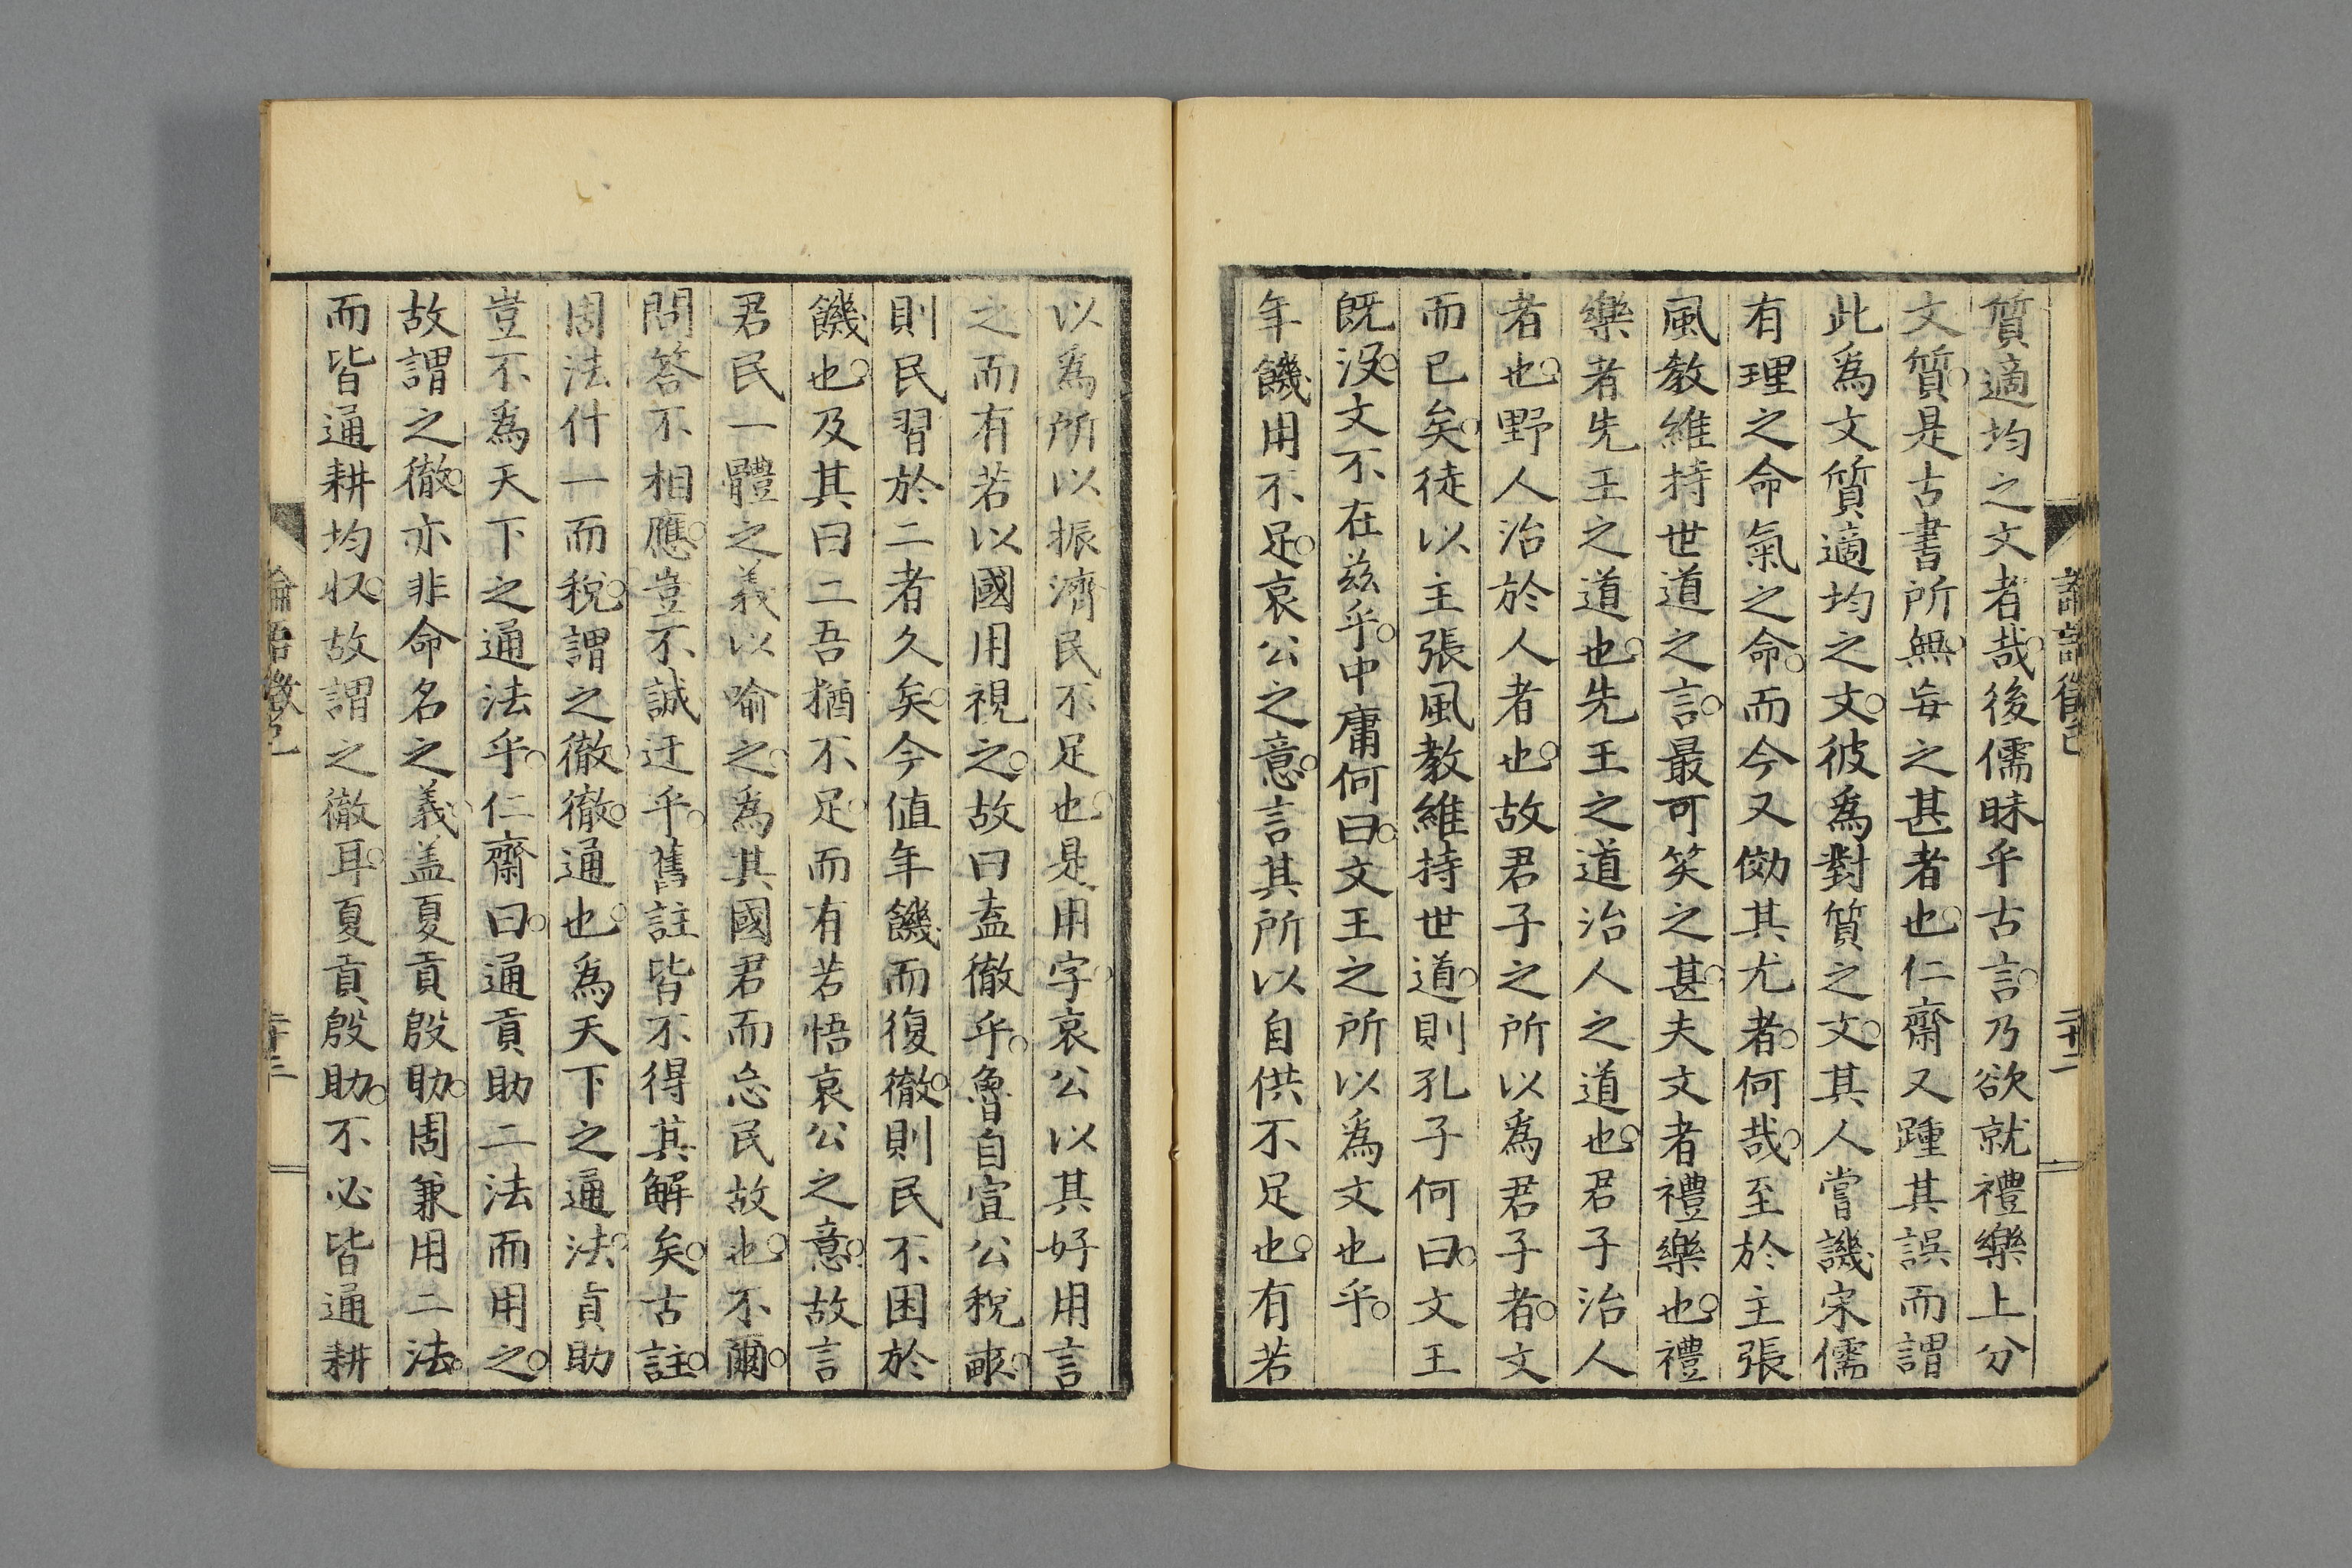 論語徴己
二十二
質適均之文者哉。後儒昧乎古言。乃欲就禮樂上分
文質。是古書所無。妄之甚者也。仁齋又踵其誤而謂
此爲文質適均之文。彼爲對質之文。其人嘗譏宋儒
有理之命氣之命。而今又傚其尤者。何哉。至於主張
風教維持世道之言。最可笑之甚。夫文者禮樂也。禮
樂者先王之道也。先王之道治人之道也。君子治人
者也。野人治於人者也。故君子之所以爲君子者。文
而已矣。徒以主張風教維持世道。則孔子何曰。文王
既沒。文不在茲乎。中庸何曰。文王之所以爲文也乎。
年饑用不足。哀公之意。言其所以自供不足也。有若
以爲所以振濟民不足也。是用字。哀公以其好用言
之而有若以國用視之。故曰盍徹乎。魯自宣公稅畝。
則民習於二者久矣。今値年饑而復徹。則民不困於
饑也。及其曰二吾猶不足。而有若悟哀公之意。故言
君民一體之義以喻之。爲其國君而忘民故也。不爾。
問答不相應。豈不誠迂乎。舊註皆不得其解矣。古註。
周法什一而稅。謂之徹。徹。通也。爲天下之通法。貢助
豈不爲天下之通法乎。仁齋曰。通貢助二法而用之。
故謂之徹。亦非命名之義。盖夏貢殷助。周兼用二法。
而皆通耕均収。故謂之徹耳。夏貢殷助。不必皆通耕
論語徴己
二十三